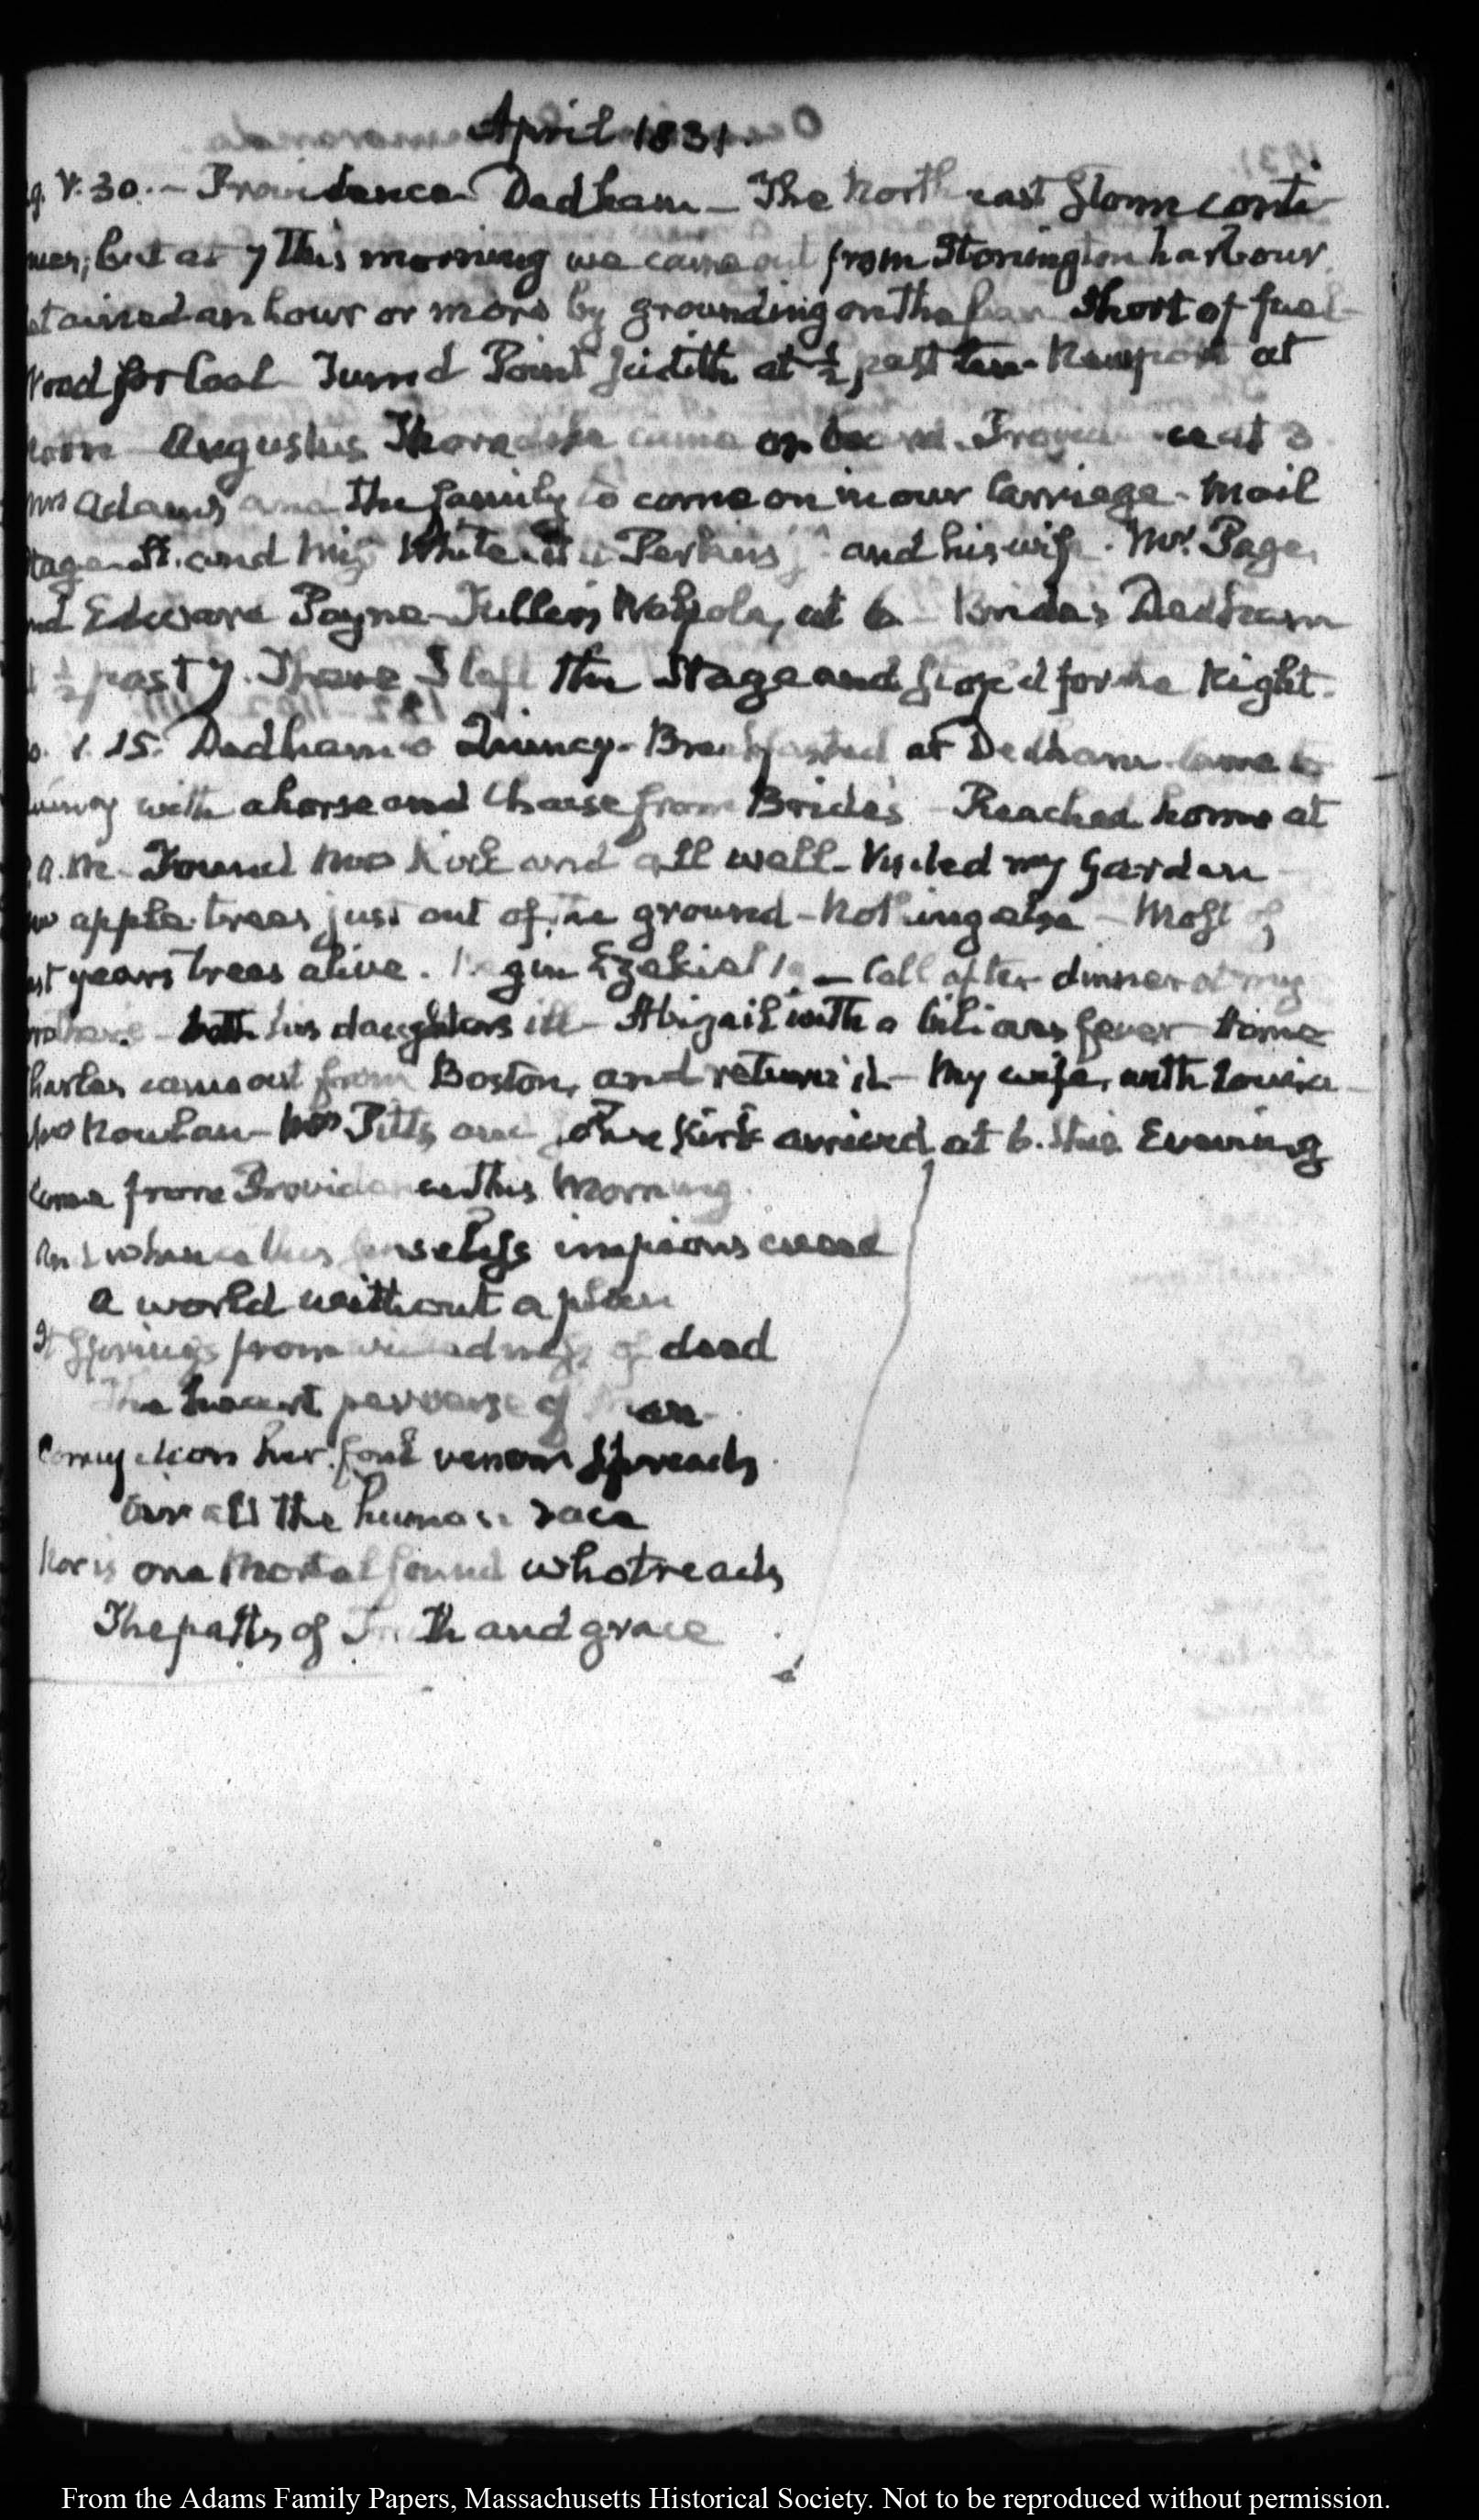 April 1831.
g. V. 30. — Providence Dedham — The North east storm conti
nues; but at 7 this morning we came out from Stonington harbour.
etained an hour or more by grounding on the bar Short of fuel—
Wood for Coal Turn'd Point Judith at ½ past ten — Newport at
noon — Augustus Thorndike came on board. Providence at 3
Mrs Adams and the family to come on in our Carriage — Mail
tage and Miss White Perkins jr. and his wife. Mr. Page,
nd Edward Payne — Fuller's Walpole, at 6 — Bride's Dedham
½ past 7. There I left the Stage and stop'd for the Night.
o. 1. 15. Dedham Quincy — Breakfasted at Dedham came to
uincy with a horse and Chaise from Bride's — Reached home at
a.m. Found Mrs Kirk and all well — Visited my Garden —
apple trees just out of the ground — Nothing else — Most of
st years trees alive. Began Ezekiel — Call after dinner at my
rother's — both his daughters ill — Abigail with a bilious fever — Home
harles came out from Boston, and return'd — My wife, with Louisa
Mrs Nowlan — Mrs Pitts and John Kirk arrived at 6. this Evening
Come from Providence this Morning.
And whence this senseless impious creed
A world without a plan
It springs from wickedness of deed
The heart perverse of Man.
Corruption her foul venom spreads
O'er all the human race
Nor is one Mortal found who treads
The paths of Truth and grace
From the Adams Family Papers, Massachusetts Historical Society. Not to be reproduced without permission.